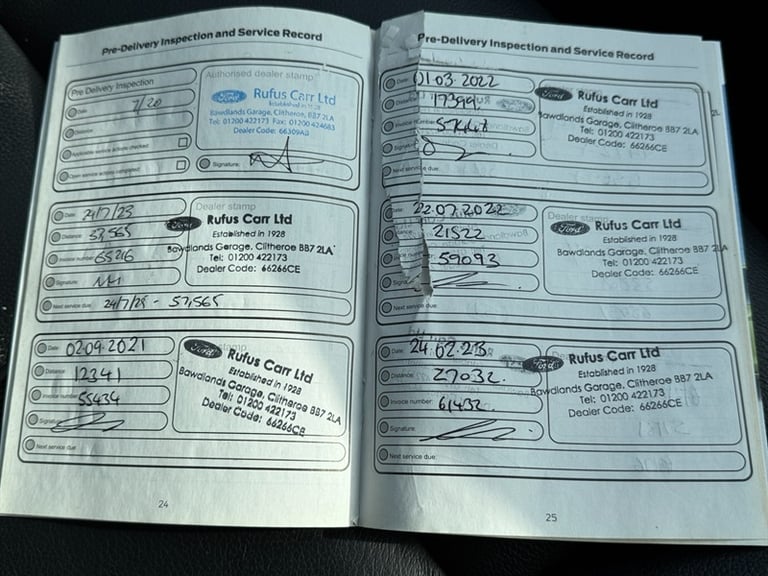 Pre-Delivery Inspection and Service Record
Pre Delivery Inspection
Date 7/20
Distance
Applicable service actions checked
Open service actions completed
Authorised dealer stamp
Ford Rufus Carr Ltd
Established in 1928
Bawdlands Garage, Clitheroe, BB7 2LA
Tel: 01200 422173 Fax: 01200 424683
Dealer Code: 66309AB
Signature:
Date: 24/7/23
Distance:
Invoice number: 65216
Signature:
Next service due: 24/7/25 - 57,565
Dealer stamp
Ford Rufus Carr Ltd
Established in 1928
Bawdlands Garage, Clitheroe BB7 2LA
Tel: 01200 422173
Dealer Code: 66266CE
Date: 02.09.2021
Distance: 12341
Invoice number: 55434
Signature:
Next service due:
stamp
Ford Rufus Carr Ltd
Established in 1928
Bawdlands Garage, Clitheroe BB7 2LA
Tel: 01200 422173
Dealer Code: 66266CE
24
Pre-Delivery Inspection and Service Record
Date: 01.03.2022
Distance:
Invoice number:
Signature
Next service due:
Ford Rufus Carr Ltd
Established in 1928
Bawdlands Garage, Clitheroe BB7 2LA
Tel: 01200 422173
Dealer Code: 66266CE
Date: 22.07.2022
21522
59093
Next service due:
Dealer stamp
Ford Rufus Carr Ltd
Established in 1928
Bawdlands Garage, Clitheroe BB7 2LA
Tel: 01200 422173
Dealer Code: 66266CE
Date: 24.02.23
Distance: 27032.
Invoice number: 61432.
Signature:
Next service due:
Ford Rufus Carr Ltd
Established in 1928
Bawdlands Garage, Clitheroe BB7 2LA
Tel: 01200 422173
Dealer Code: 66266CE
25